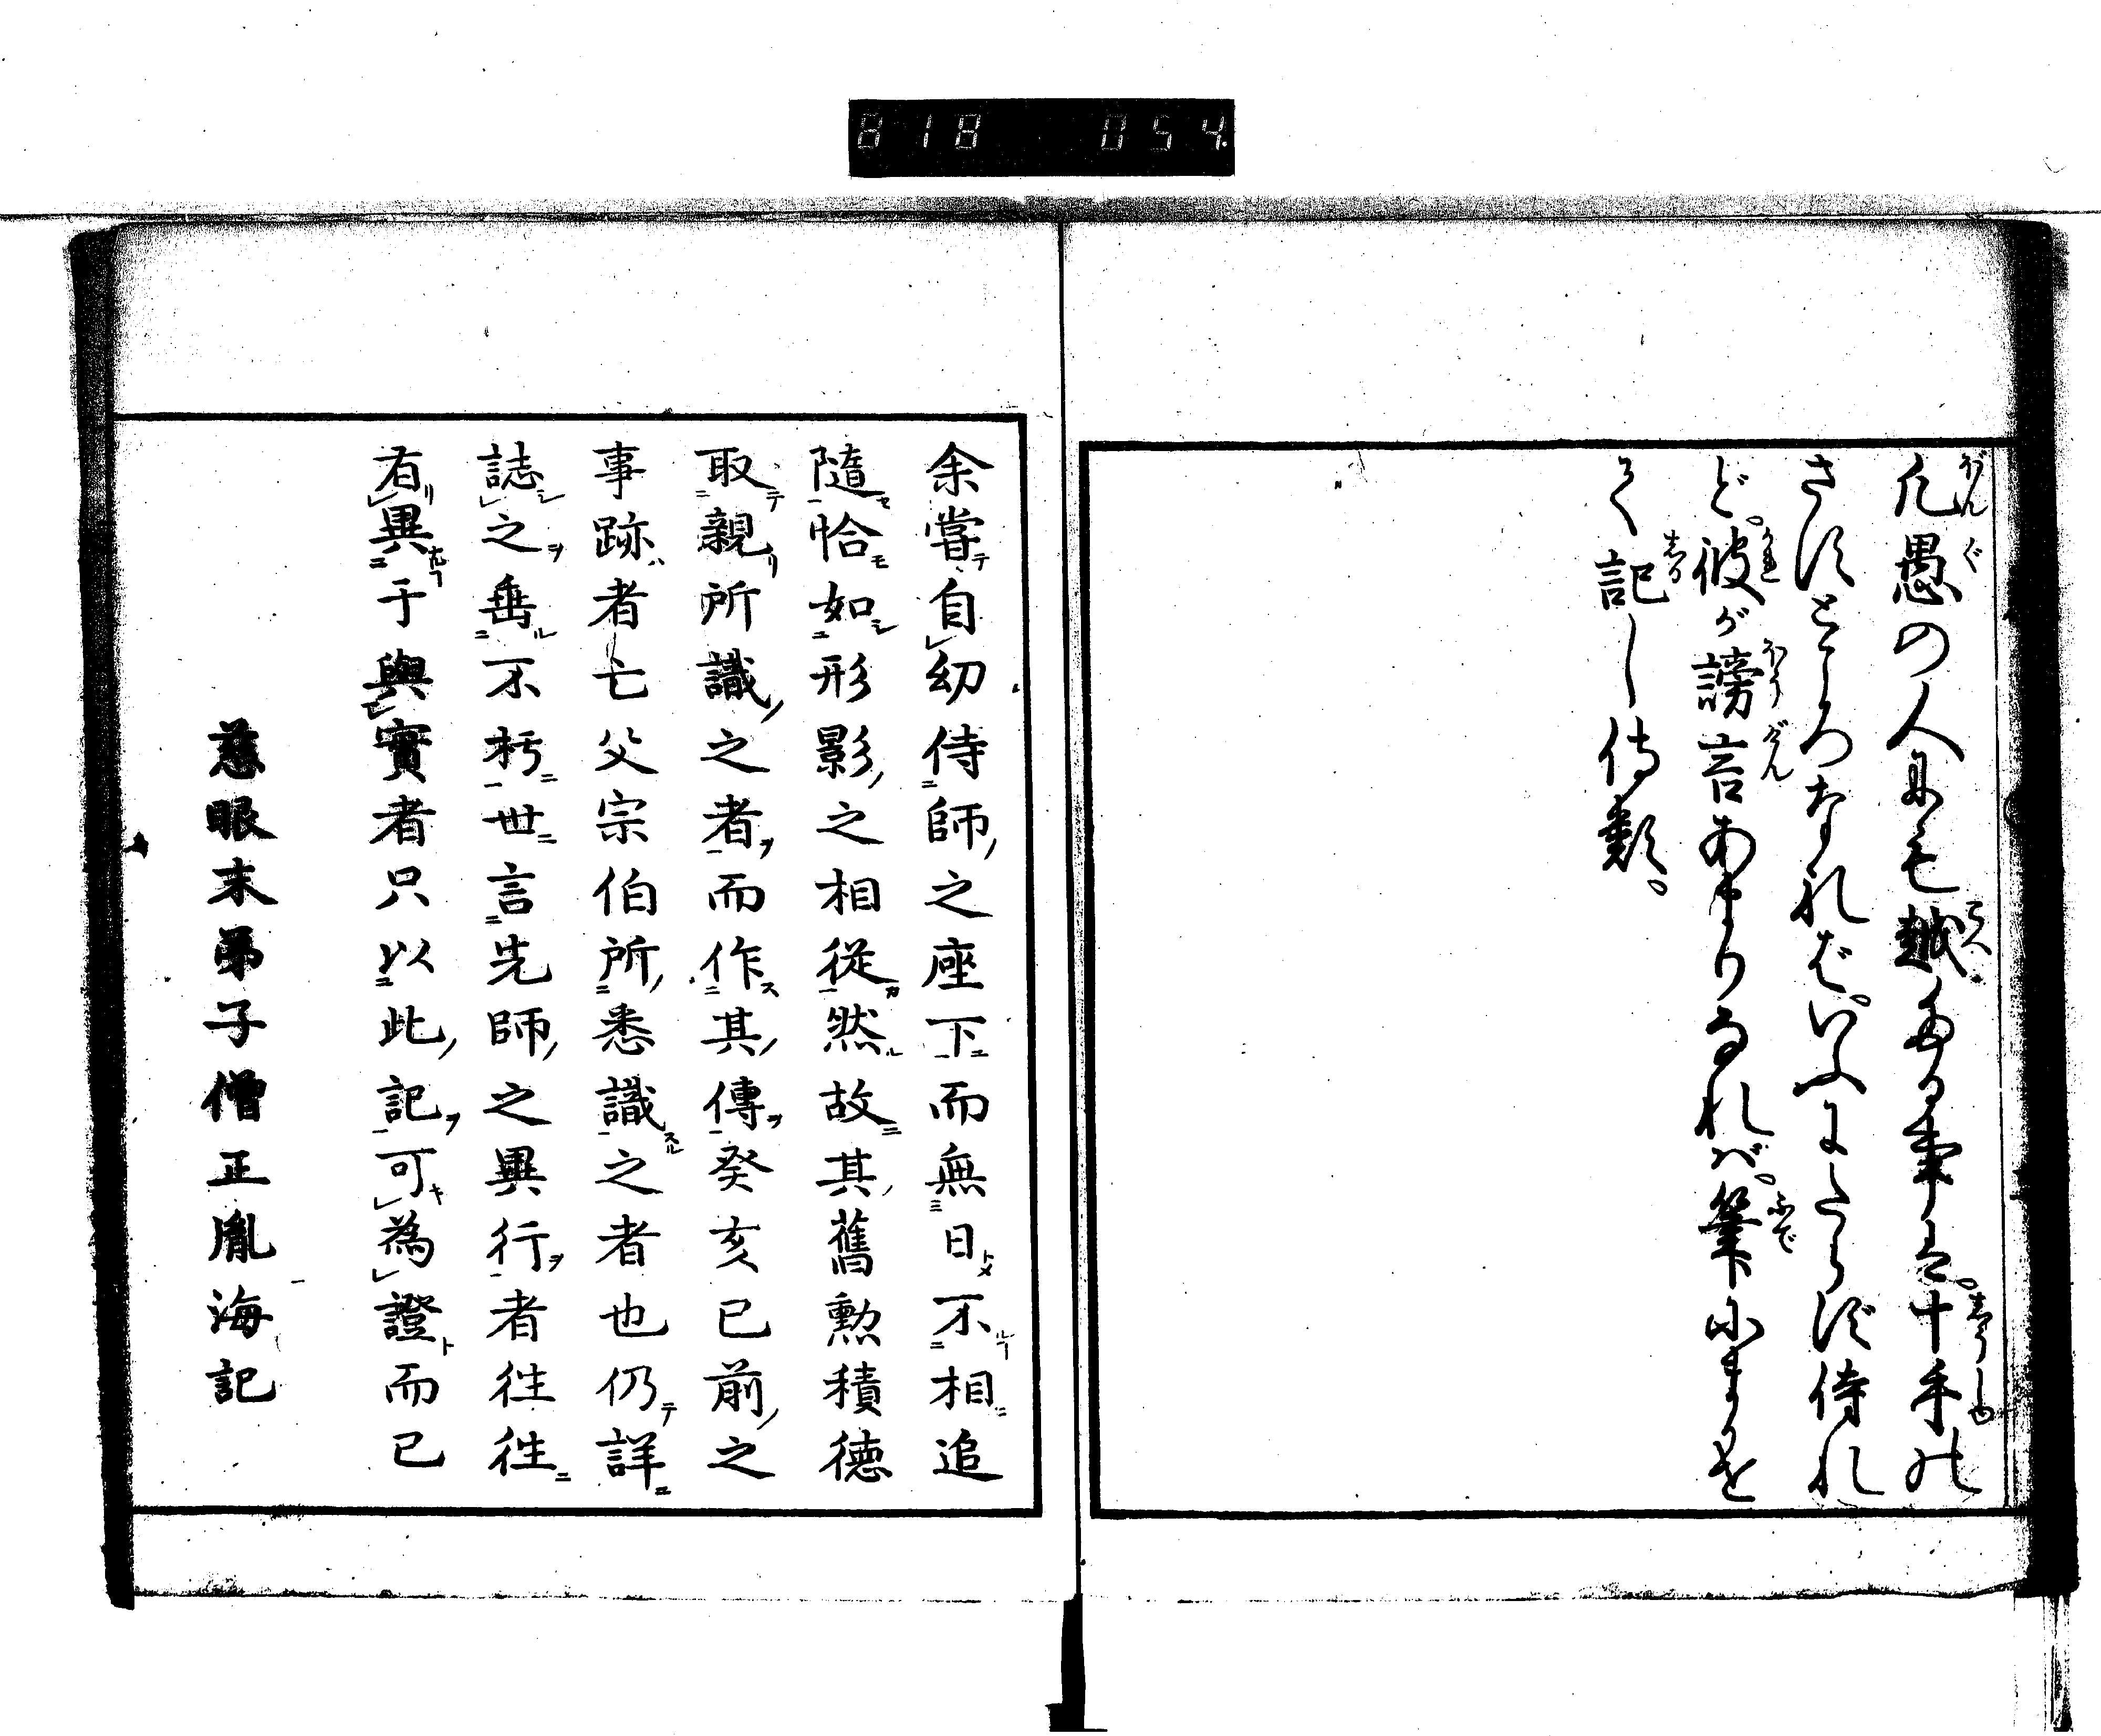 818 054
凡愚の人にも越たる事は。十手の
さすところなれば。いふにたらず侍れ
ど。彼が謗言あまりなれば。筆にまかせ
て記し侍歟。
余嘗自幼侍師之座下而無日不相追
隨恰如形影之相從然故其舊勲積德
取親所識之者而作其傳癸亥已前之
事跡者亡父宗伯所悉識之者也仍詳
誌之垂不朽世言先師之異行者往往
有異于與實者只以此記可為證而已
慈眼末弟子僧正胤海記